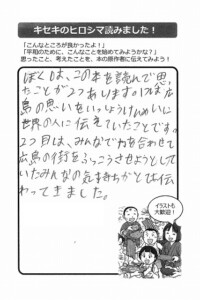 キセキのヒロシマ読みました!
「こんなところが良かったよ!」
「平和のために、こんなことを始めてみようかな?」
思ったこと、考えたことを、本の原作者に伝えてみよう!
ぼくは、この本を読んで思っ
たことが2つあります。1つは広
島の思いをいっしょうけんめいに
世界の人に伝えていたことです。
2つ目は、みんなで力を合わせて
広島の街をふっこうさせようとして
いたみんなの気もちがとても伝
わってきました。
イラストも
大歓迎!